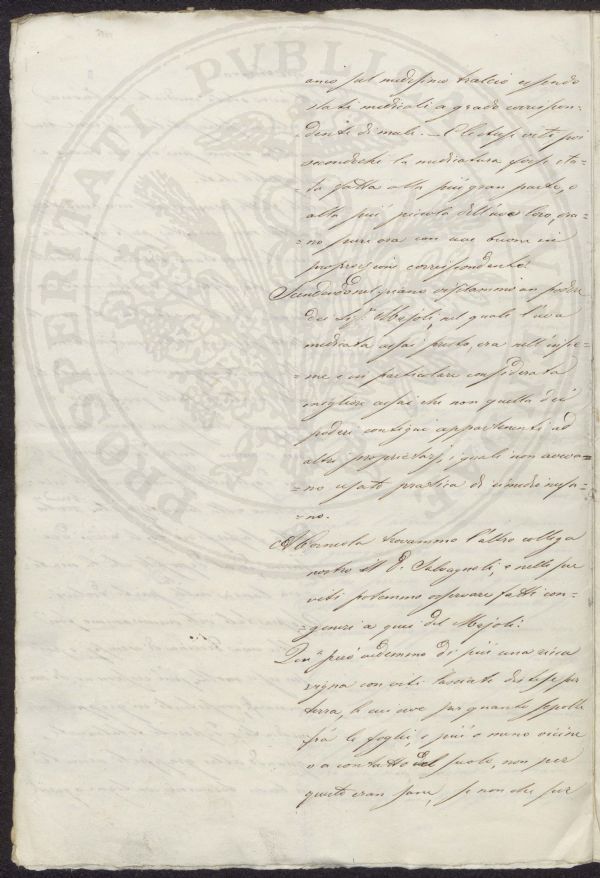 PROSPERITATI PVBLICAE AVGENDAE
anco sul medesimo tralcio essendo
stati medicati a grado corrispon-
-denti di mali. — Le stesse viti poi
secondochè la medicatura fosse sta-
-ta fatta alla più gran parte, o
alla più piccola dell'uve loro, era-
-no pure ora con uve buone in
proporzione corrispondente.
Scendendo nel piano visitammo un podere
del Sig.r Majoli, nel quale l'uva
medicata assai presto, era nell'insie-
-me e in particolare considerata
migliore assai che non quella dei
poderi contigui appartenenti ad
altri proprietarj, i quali non aveva-
-no usato pratica di rimedio nissu-
-no.
A trovammo l'altro collega
nostro il D. Salvagnoli, e nelle sue
viti potemmo osservare fatti con-
-generi a quei del Majoli.
però vedemmo di più una ricca
vigna con viti lasciate distese per
terra, le cui uve per quanto sepolte
frà le foglie, e più o meno vicine
o a contatto del suolo, non per
questo eran sane, se non che per